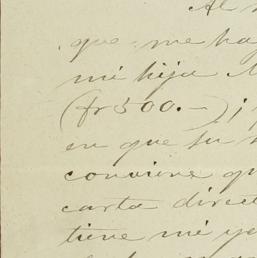 Al
que me ha
mi hija
(fr 500.—) ;
en que su
conviene qu
carta direct
tiene mi y